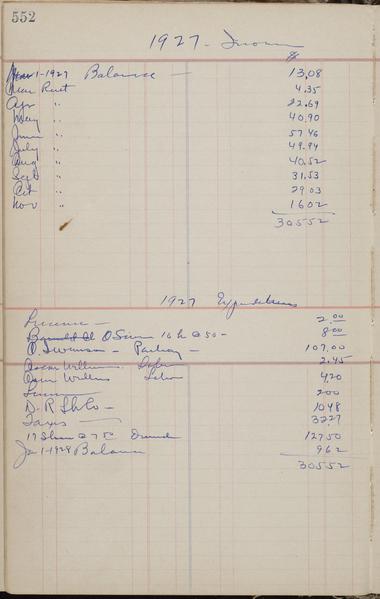 552
1927 - Income
$
Jan 1-1927 Balance — 13,08
Mar Rent 4.35
Apr " 22.69
May " 40.90
June " 57 46
July " 49.94
Aug " 40.52
Sept " 31.53
Oct " 29 03
Nov " 16 02
305 52
1927 Expenditures
License — 2.00
O Swan 16 h @ 50 - 8.00
O. Swanson - 107.00
2.45
4.20
200
D. R. Sh Co - 10 48
Taxes — 32.27
17 Shares @ 7 50 127 50
Jan 1-1928 Balance 9 62
305 52